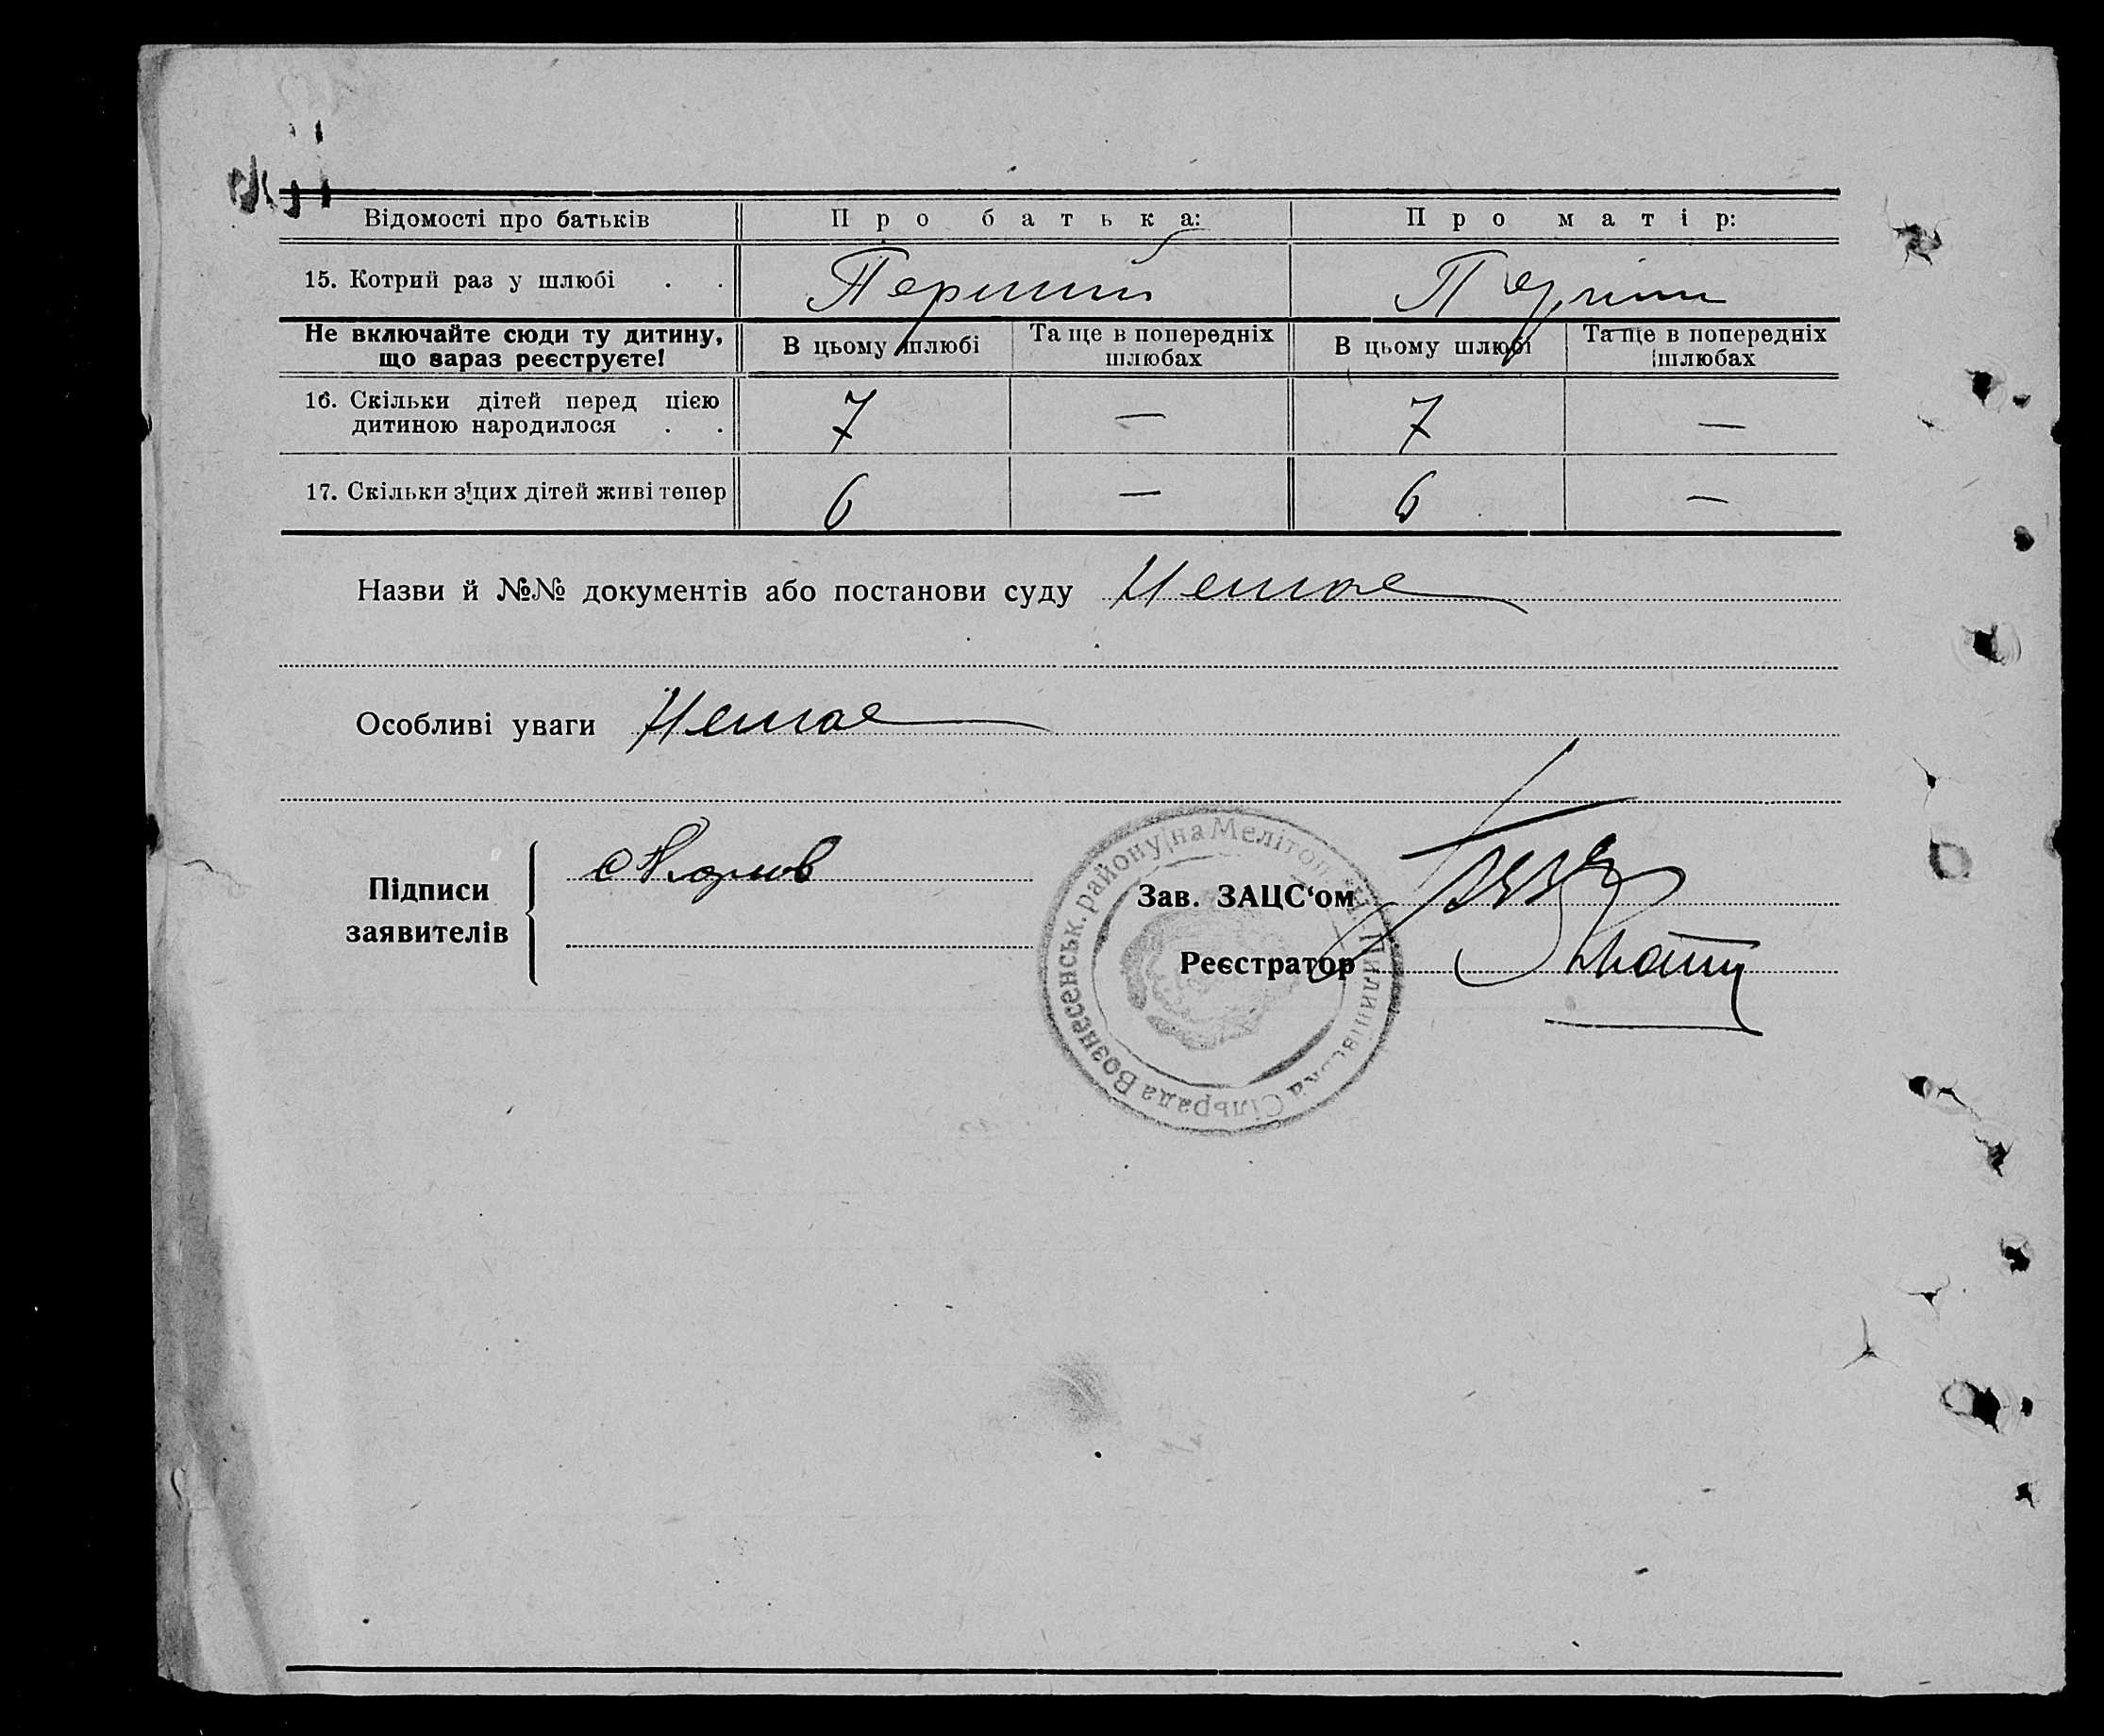 Відомості про батьків Про батька: Про матір:
15. Котрий раз у шлюбі . . Перший Перший
Не включайте сюди ту дитину, що вараз реєструєте! В цьому шлюбі Та ще в попередніх шлюбах В цьому шлюбі Та ще в попередніх шлюбах
16. Скільки дітей перед цією дитиною народилося . . 7 — 7 —
17. Скільки з цих дітей живі тепер 6 — 6 —
Назви й №№ документів або постанови суду Немає
Особливі уваги Немає
Підписи заявителів
Зав. ЗАЦС‘ом
Реєстратор
Сільрада Вознесенськ. району на Мелітоп